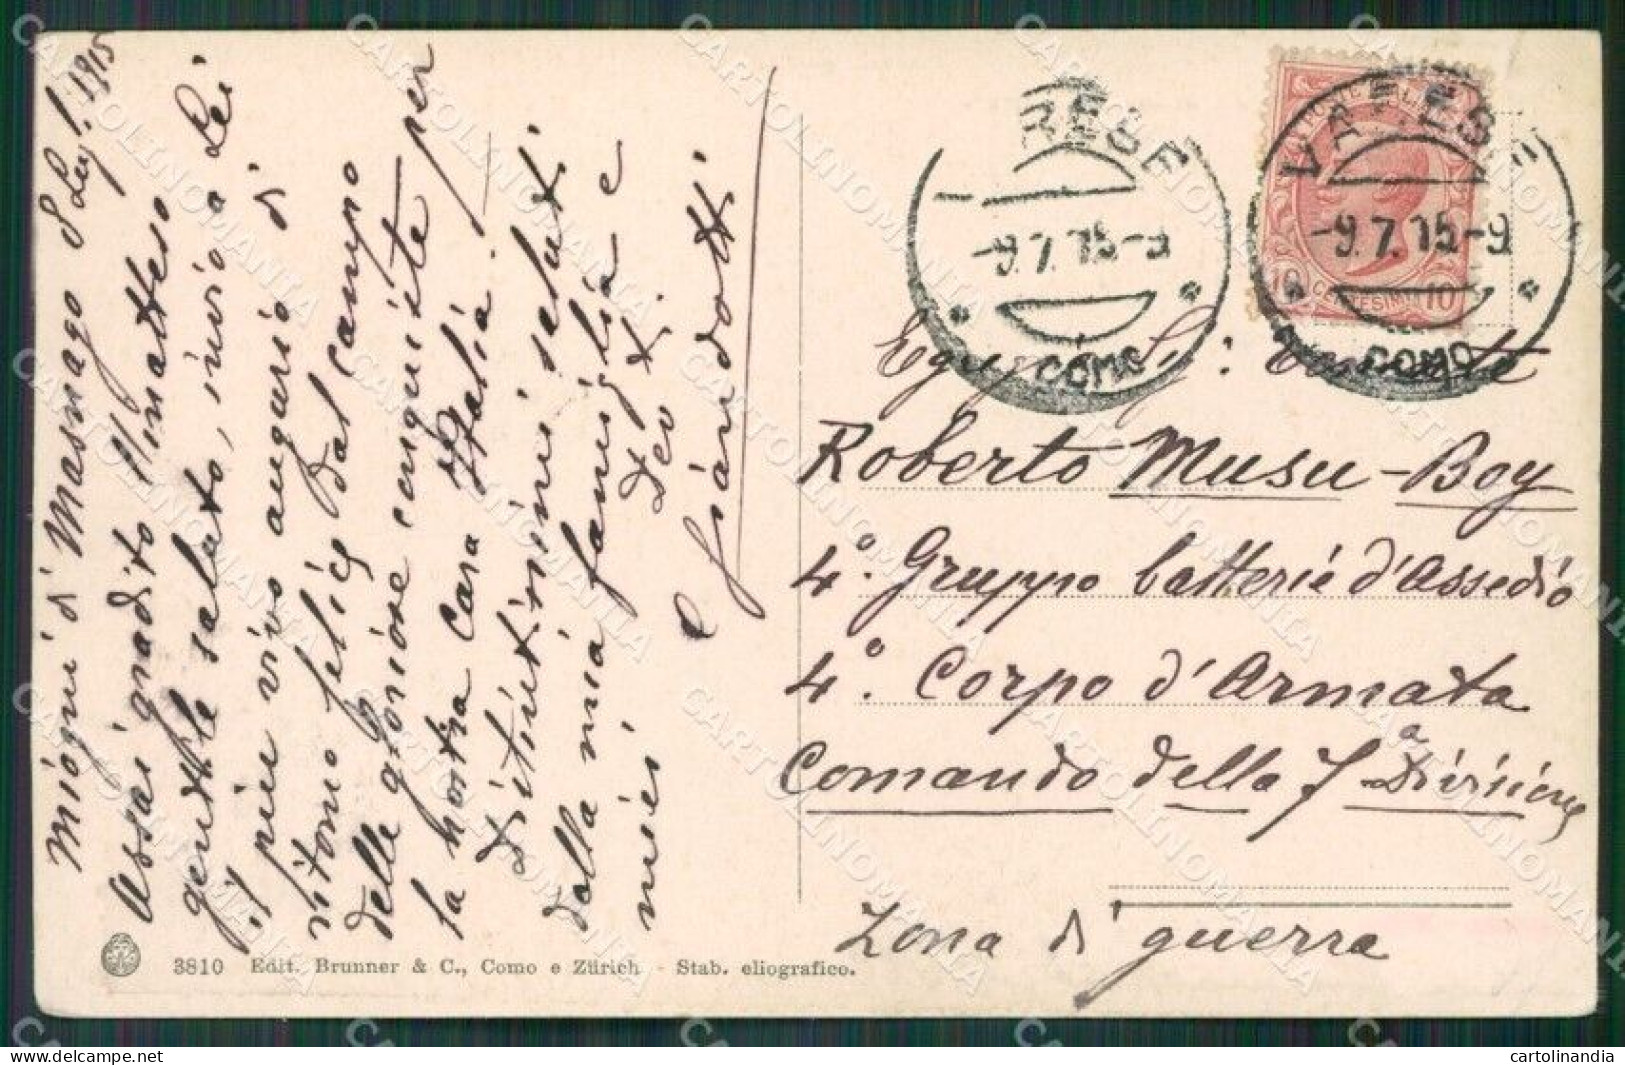 Miogni di Masnago 8 Lug! 1915
Assai gradito Ninatteso
gentile saluto, invio a Lei
il più vivo augurio di
ritorno felice dal campo
delle gloriose conquiste per
la nostra cara Italia.
distintissimi saluti
dalla mia famiglia e
miei
Dev
Giandotti
RESE
-9.7.15-9
COMO
VARESE
-9.7.15-9
COMO
10 CENTESIMI 10
Egr. Sig: Tenente
Roberto Musu-Boy
4°. Gruppo batterie d'Assedio
4°. Corpo d'Armata
Comando della 7a Divisione
Zona di guerra
3810 Edit. Brunner & C., Como e Zürich - Stab. eliografico.
CARTOLINOMANIA
cartolinandia